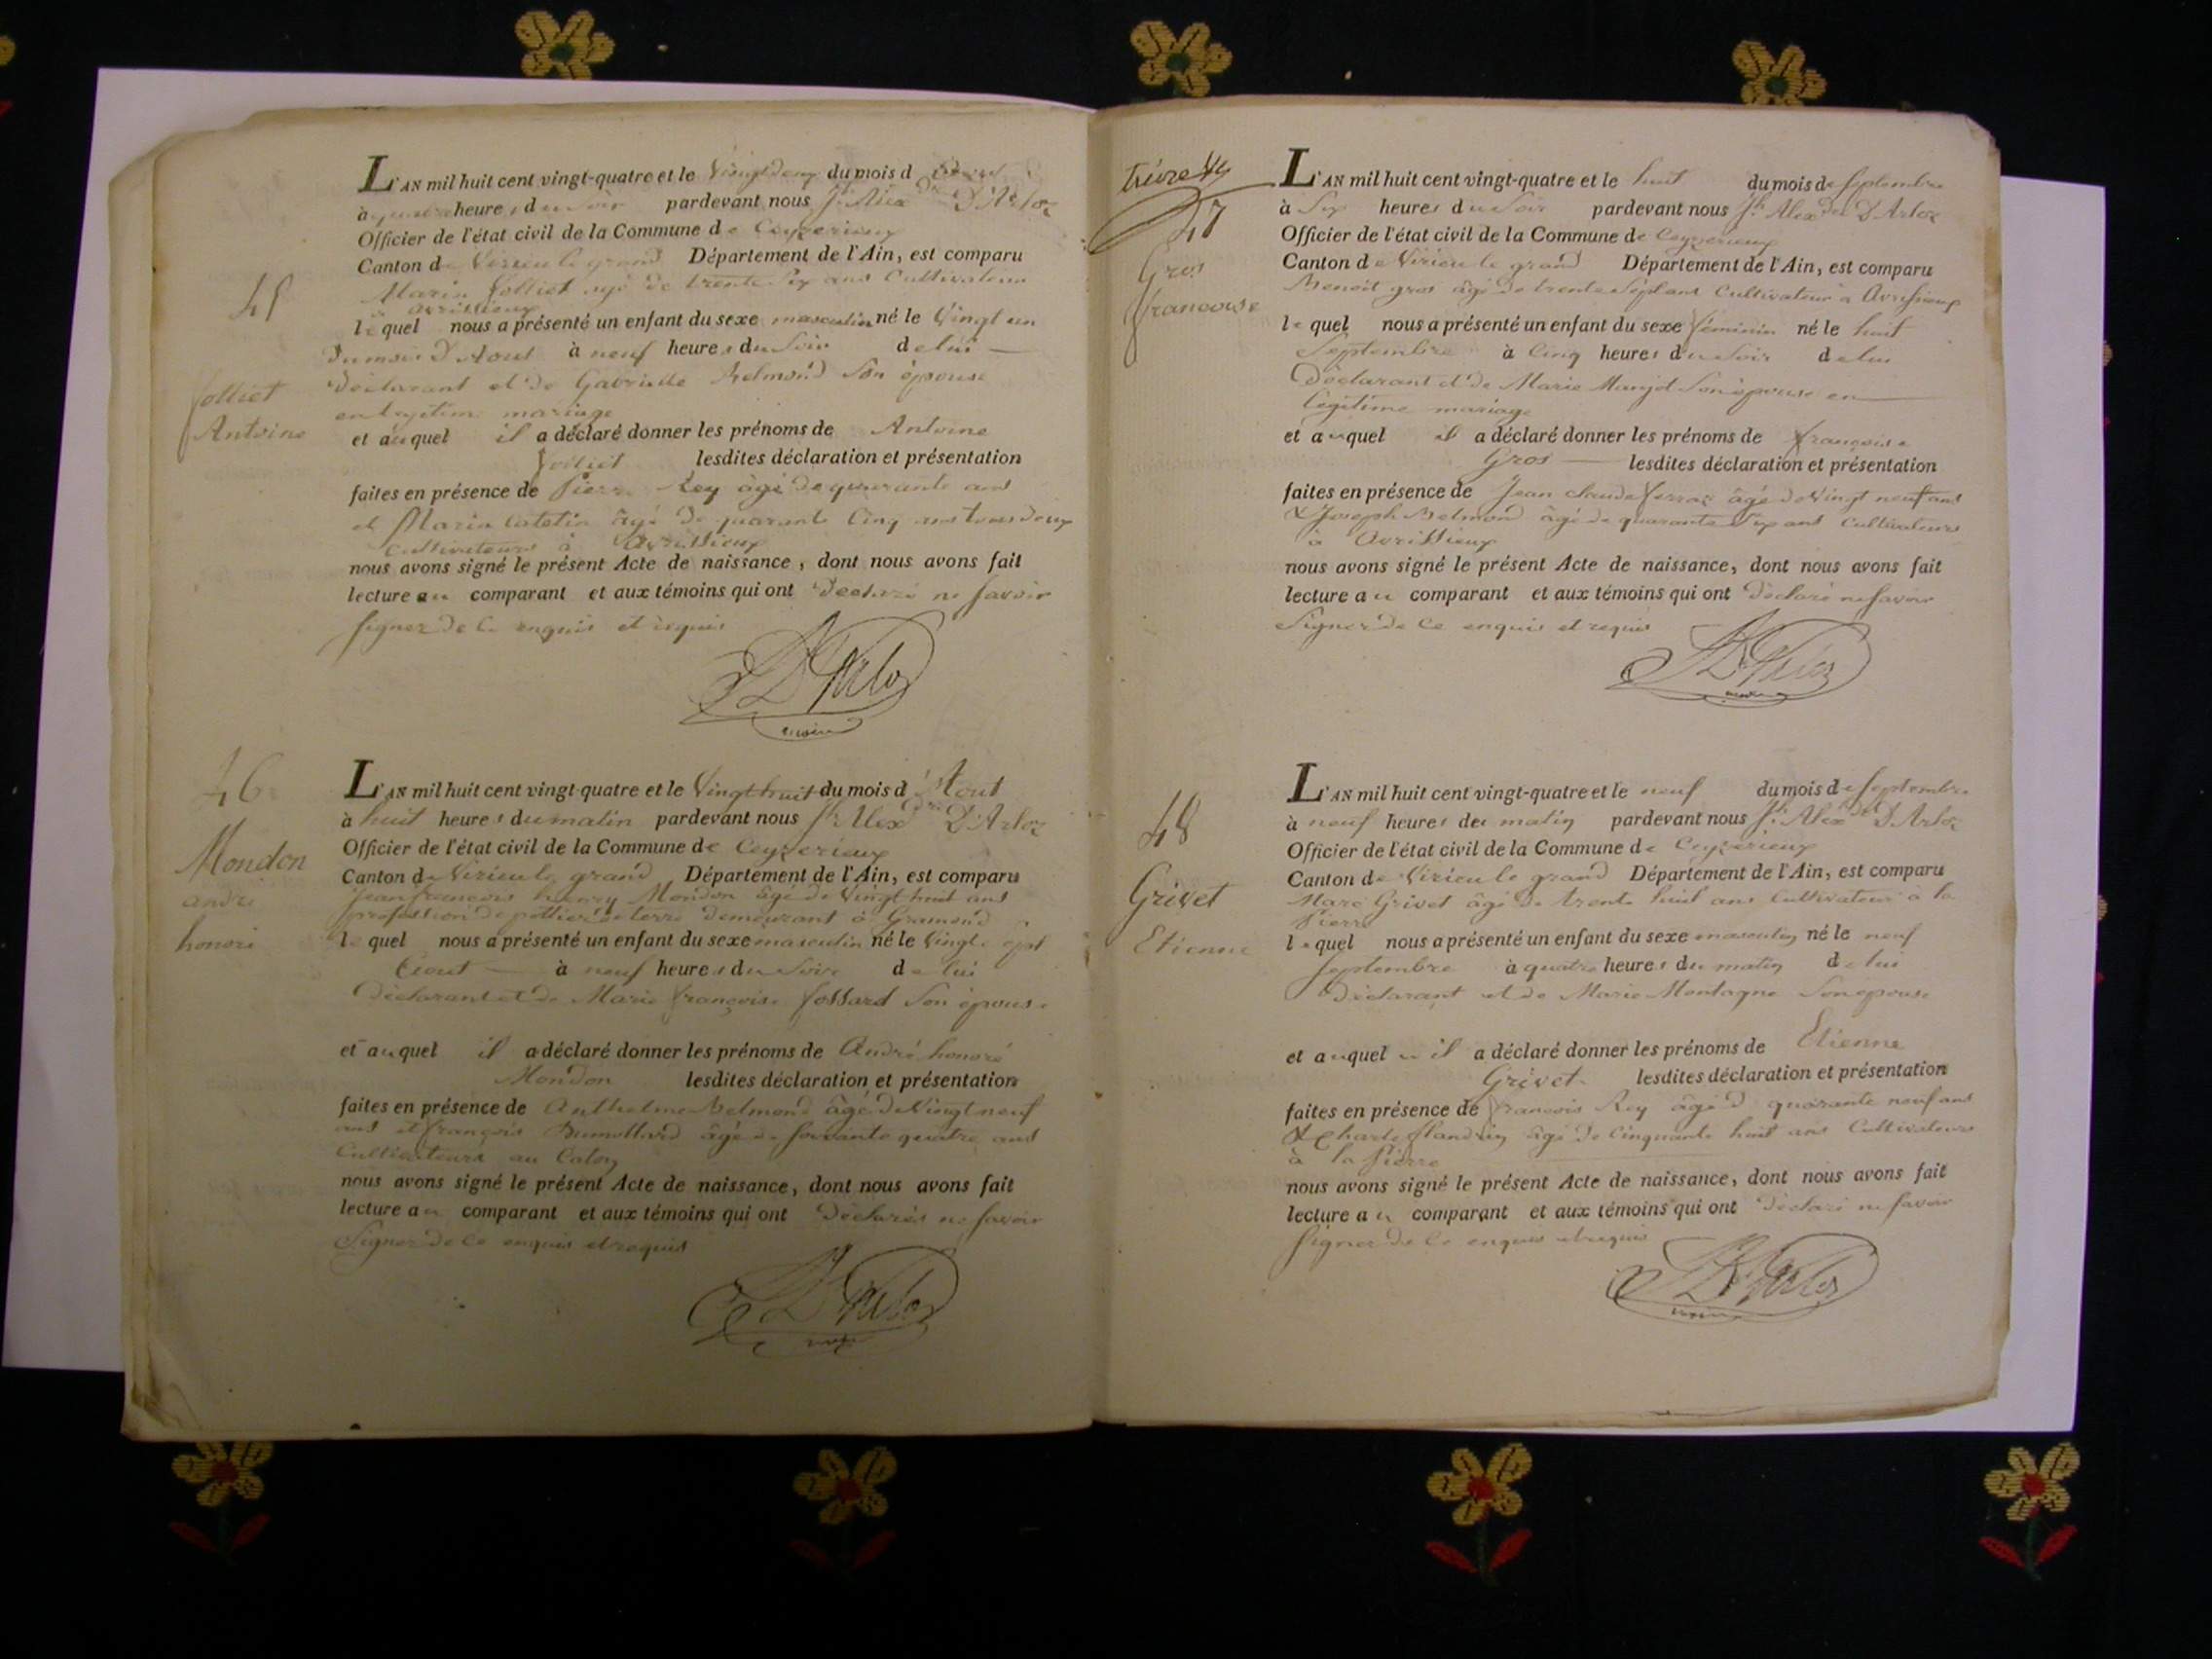 45
Jolliet
Antoine
L'AN mil huit cent vingt-quatre et le Vingt deux du mois d'Aout
à quatre heures du Soir pardevant nous Jh Alexdre D'Arloz
Officier de l'état civil de la Commune de Ceyzerieux
Canton de Virieu le grand Département de l'Ain, est comparu
Marin Jolliet agé de trente Six ans Cultivateur
à avrissieux
lequel nous a présenté un enfant du sexe masculin né le Vingt un
du mois D'Aout à neuf heures du Soir de lui
Déclarant et de Gabrielle Belmond Son épouse
en legitime mariage
et auquel il a déclaré donner les prénoms de Antoine
Jolliet lesdites déclaration et présentation
faites en présence de Pierre Rey âgé de quarante ans
et Marin âgé de quarante Cinq ans tous deux
cultivateurs à Avrissieux
nous avons signé le présent Acte de naissance, dont nous avons fait
lecture au comparant et aux témoins qui ont Déclaré ne Savoir
Signer de ce enquis et requis
J D'Arloz
maire
46
Mondon
andré
honoré
L'AN mil huit cent vingt-quatre et le Vingt huit du mois d'Aout
à huit heures du matin pardevant nous Jh Alexdre D'Arloz
Officier de l'état civil de la Commune de Ceyzerieux
Canton de Virieu le grand Département de l'Ain, est comparu
Jean françois henry Mondon âgé de Vingt huit ans
profession de pottier de terre demeurant à Gramond
lequel nous a présenté un enfant du sexe masculin né le Vingt Sept
Aout à neuf heures du Soir de lui
Déclarant et de Marie françoise fossard Son épouse
et auquel il a déclaré donner les prénoms de André honoré
Mondon lesdites déclaration et présentation
faites en présence de Anthelme Belmond âgé de Vingt neuf
ans et françois Dumollard âgé de Soixante quatre ans
Cultivateurs au
nous avons signé le présent Acte de naissance, dont nous avons fait
lecture au comparant et aux témoins qui ont Déclarés ne Savoir
Signer de ce enquis et requis
J D'Arloz
47
Gros
francoise
L'AN mil huit cent vingt-quatre et le huit du mois de Septembre
à Six heures du Soir pardevant nous Jh Alexdre D'Arloz
Officier de l'état civil de la Commune de Ceyzerieux
Canton de Virieu le grand Département de l'Ain, est comparu
Benoit gros âgé de trente Sept ans Cultivateur à Avrissieux
lequel nous a présenté un enfant du sexe féminin né le huit
Septembre à Cinq heures du Soir de lui
Déclarant et de Marie Manjot Son épouse en
legitime mariage
et auquel il a déclaré donner les prénoms de françoise
Gros lesdites déclaration et présentation
faites en présence de Jean claude ferraz âgé de Vingt neuf ans
& Joseph Belmond âgé de quarante Six ans Cultivateurs
à Avrissieux
nous avons signé le présent Acte de naissance, dont nous avons fait
lecture au comparant et aux témoins qui ont Déclaré ne Savoir
Signer de Ce enquis et requis
J D'Arloz
maire
48
Grivet
Etienne
L'AN mil huit cent vingt-quatre et le neuf du mois de Septembre
à neuf heures du matin pardevant nous Jh Alexdre D'Arloz
Officier de l'état civil de la Commune de Ceyzerieux
Canton de Virieu le grand Département de l'Ain, est comparu
Marc Grivet âgé de trente huit ans Cultivateur à la
Pierre
lequel nous a présenté un enfant du sexe masculin né le neuf
Septembre à quatre heures du matin de lui
Déclarant et de Marie Montagne Son epouse
et auquel il a déclaré donner les prénoms de Etienne
Grivet lesdites déclaration et présentation
faites en présence de francois Rey âgé d quarante neuf ans
& Charle flandrin âgé de Cinquante huit ans Cultivateurs
à la Pierre
nous avons signé le présent Acte de naissance, dont nous avons fait
lecture au comparant et aux témoins qui ont Déclaré ne Savoir
Signer de Ce enquis et requis
J D'Arloz
maire